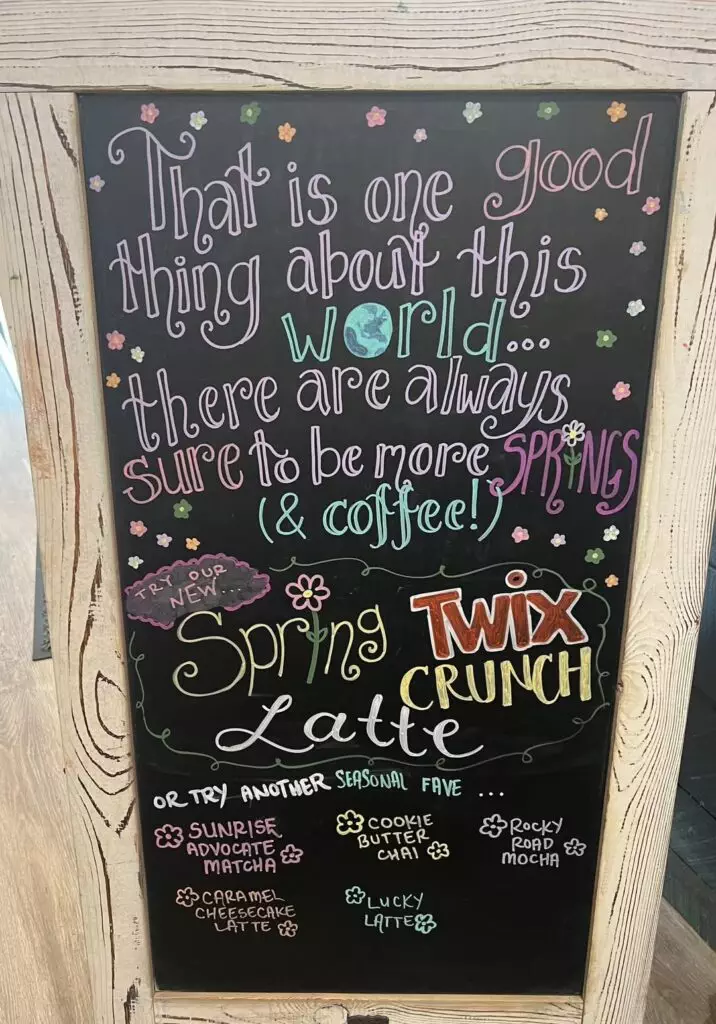 That is one good
thing about this
world...
there are always
sure to be more SPRINGS
(& coffee!)
TRY OUR
NEW...
Spring TWIX
CRUNCH
Latte
OR TRY ANOTHER SEASONAL FAVE ...
SUNRISE
ADVOCATE
MATCHA
COOKIE
BUTTER
CHAI
ROCKY
ROAD
MOCHA
CARAMEL
CHEESECAKE
LATTE
LUCKY
LATTE